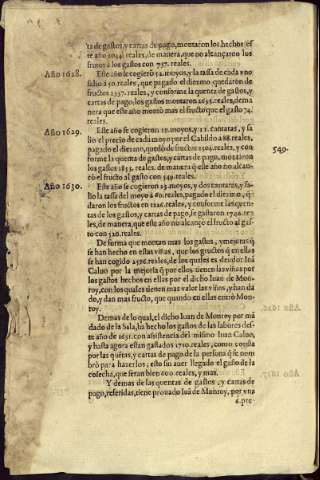 ta de gastos, y cartas de pago, montaron los hechos este año 2044. reales, de manera, que no alcançaron los frutos à los gastos con 757. reales.
Año 1628.
Este año se cogierõ 52. moyos, y la tassa de cada vno
salio à 50. reales, que pagado el diezmo quedarõ de
fructos 2337. reales, y conforme la quenta de gastos, y
cartas de pago, los gastos montaron reales, de manera que este año montò mas el fructo que el gasto 74.
reales.
Año 1629.
Este año se cogieron moyos, y 11. cantaras, y salio el precio de cada moyo por el Cabildo à 88 reales,
pagado el diezmo, quedò de fructos reales, y conforme la quenta de gastos, y cartas de pago, montaron
los gastos 1853. reales. de manera q̃ este año no alcançò el fructo al gasto con 549. reales.
549.
Año 1630.
Este año se cogieron 23. moyos, y dos cantaras, y salio la tassa del moyo à 80. reales, pagado el diezmo, q̃daron los fructos en reales, y conforme las quentas de los gastos, y cartas de pago, se gastaron reales, de manera, que este año no alcançò el fructo al gasto con 320. reales.
De forma que montan mas los gastos, y mejoras q̃
se han hecho en estas viñas, que los fructos q̃ en ellas
se han cogido reales, de los quales es deudor Iuã
Caluo por la mejoria q̃ por ellos tienen las viñas por
los gastos hechos en ellas por el dicho Iuan de Monroy, con los quales tienen mas valor las viñas, y han dado, y dan mas fructo, que quando en ellas entrò Monroy.
Demas de lo qual, el dicho Iuan de Monroy por mãdado de la Sala, ha hecho los gastos de las labores deste año de 1631. con assistencia del mismo Iuan Caluo,
y hasta agora estan gastados 1710. reales, como consta
por las quẽtas, y cartas de pago de la persona q̃ se nombrò para hazerlos, esto sin auer llegado el gasto de la
cosecha, que seran bien 400. reales, y mas.
Y demas de las quentas de gastos, y cartas de
pago, referidas, tiene prouado Iuã de Monroy, por vna